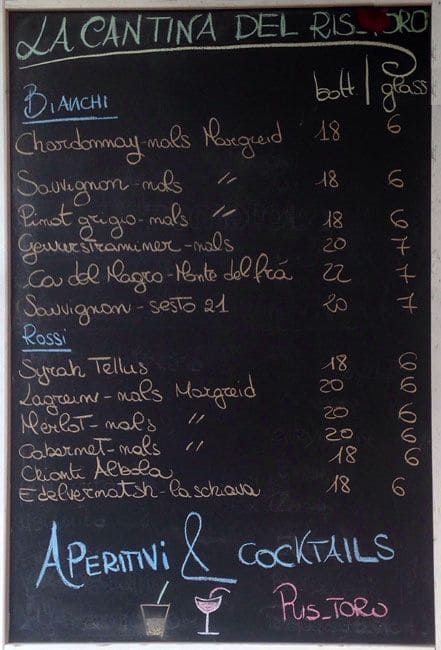 LA CANTINA DEL RIS_TORO
bott | glass
BIANCHI
Chardonnay-nals Margreid 18 6
Sauvignon-nals " 18 6
Pinot grigio-nals " 18 6
Gewurstraminer-nals 20 7
Ca del Magro-Monte del frá 22 7
Sauvignon-sesto 21 20 7
Rossi
Syrah Tellus 18 6
Lagrein-nals Margreid 20 6
Merlot-nals " 20 6
Cabernet-nals " 20 6
Chianti Albola 18 6
Edelvernatsh-la schiava 18 6
APERITIVI & COCKTAILS
RIS_TORO